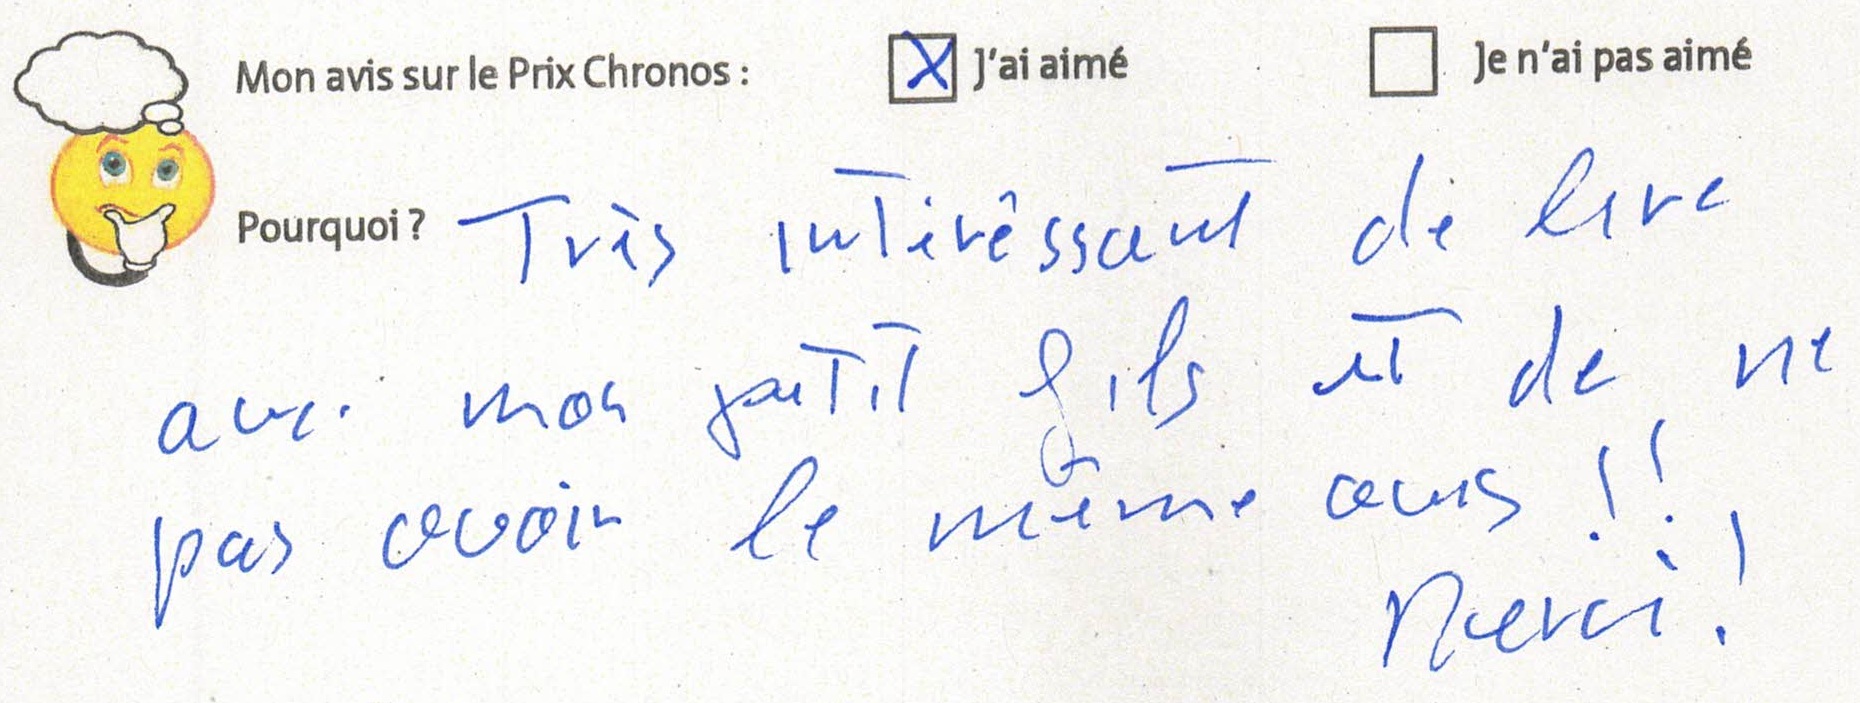 Mon avis sur le Prix Chronos : J'ai aimé Je n'ai pas aimé
Pourquoi ? Très intérêssant de lire
avec mon petit fils et de ne
pas avoir le même avis !!
Merci !